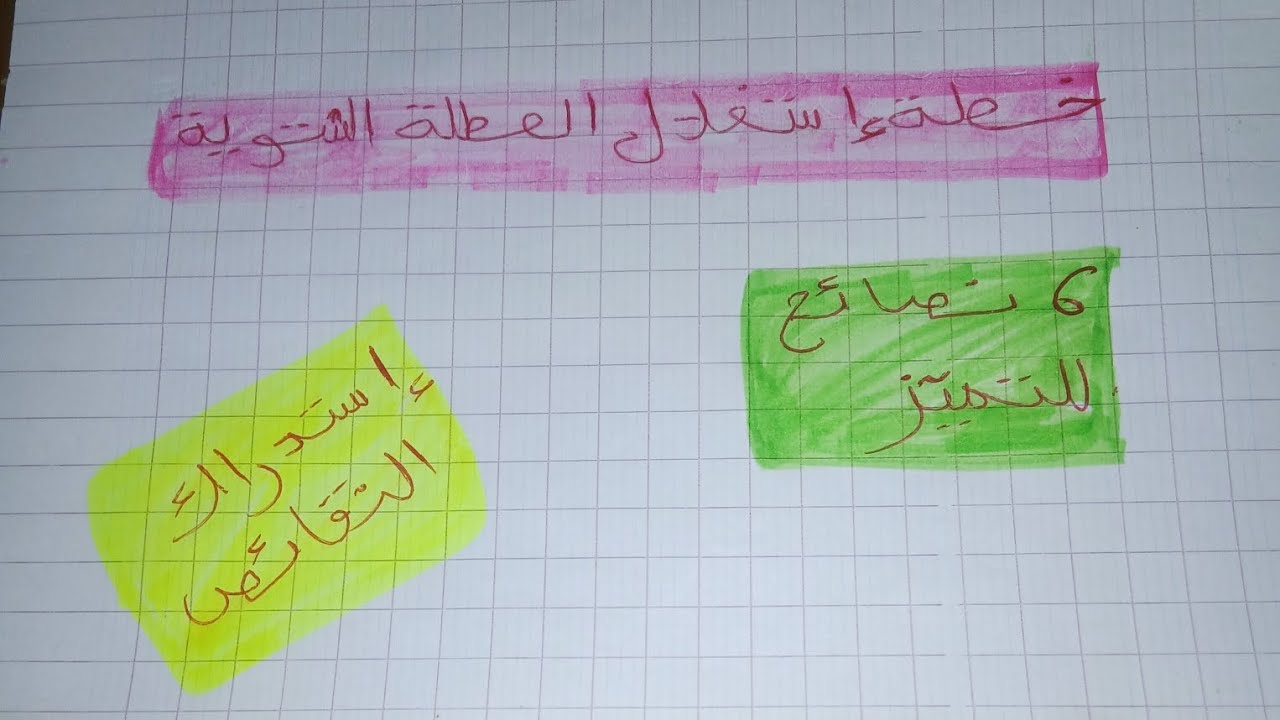 خطة إستغلال العطلة الشتوية
6 نصائح
للتميّز
إستدراك
النقائص